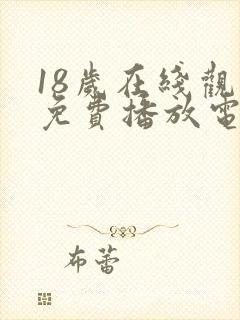 18歲在綫觀
免費播放電
布蕾